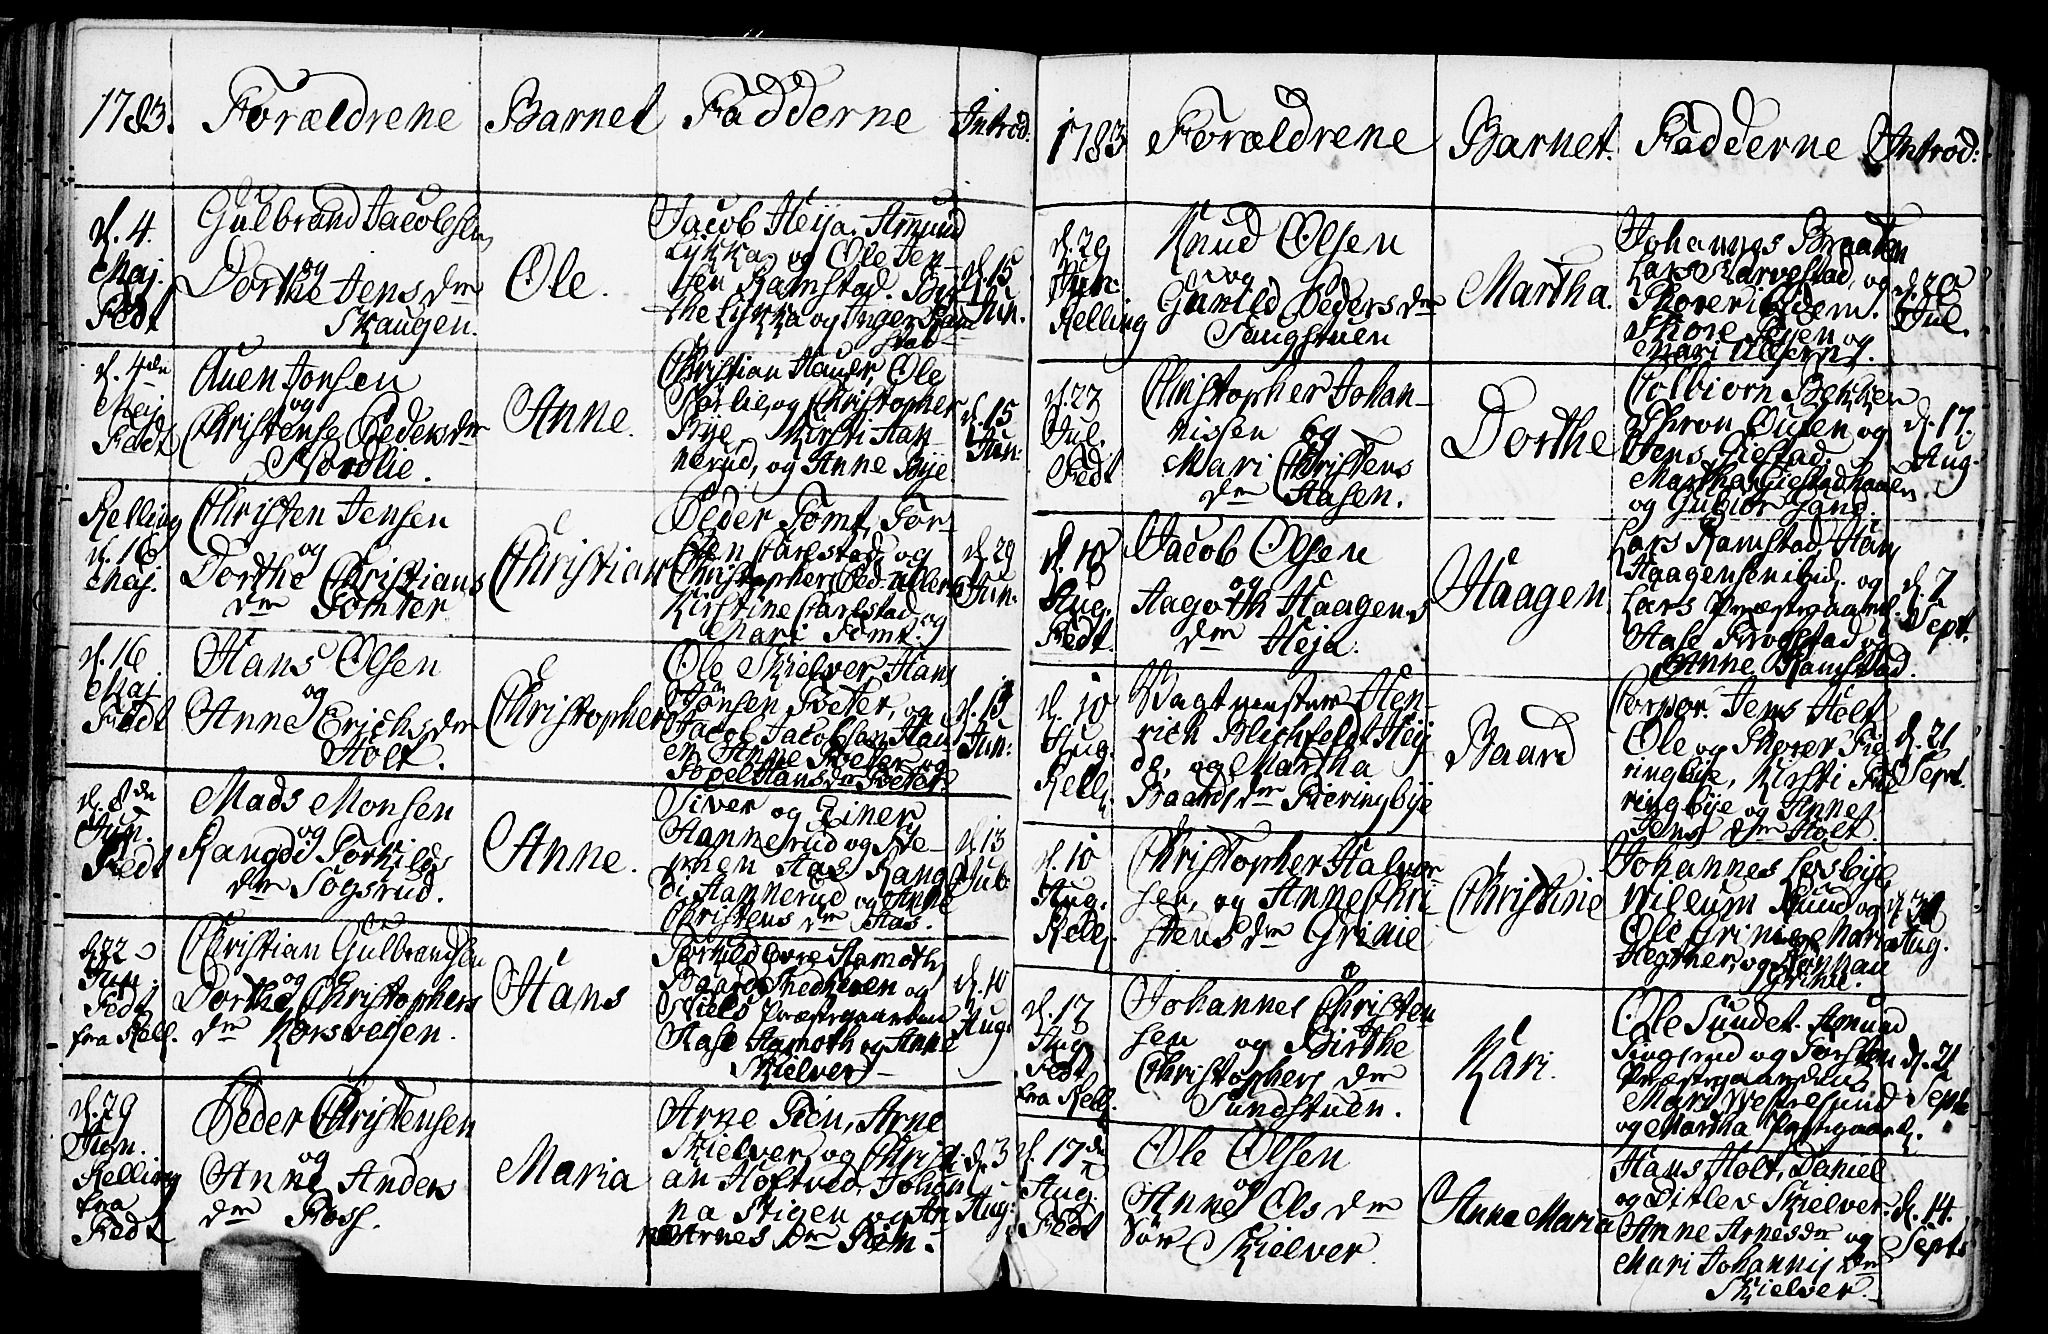 1783. Forældrene Barnet Fadderne Introd:
d. 4.
Maj.
Fedt
Gulbrand Jacobsen
og
Dorthe Jens dm
Skaugen.
Ole.
Jacob Heija, Amund
Lykka, og Ole Jen-
sen Ramstad. Bir-
the Lykka og Inger Ram
stad
d. 15
Jun.
d. 4de
Maj
Fedt
Auen Jonsen
og
Christense Peders dm
Nordlie.
Anne.
Christian Hauer, Ole
Norlie, og Christopher
Bye, Kirsti Han-
nerud, og Anne Bye
d. 15
Jun:
Relling
d. 16
Maj.
Christen Jensen
og
Dorthe Christians
dm Tomter.
Christian
Peder Tomt, Tor-
sten Carlstad, og
Christopher
Kirstine Carlstad og
Mari Tomt.
d. 29
Jun:
d. 16
Maj
Fedt
Hans Olsen
og
Anne Erichs dm
Holt.
Christopher
Ole Skielver, Hans
Jansen Tveter, og
Jacob Jacobsen Hau
en Anne Tveter og
Hans dm Tveter.
d. 15
Jun:
d. 8de
Jun.
Fedt
Mads Monsen
og
Rangdi Torkilds
dm Sogsrud.
Anne.
Siver og Einer
Hannerud og Ste-
nen Aas, Rang
di Hannerud og Anne
Christens dm Aas.
d. 13
Jul:
d. 22
Jun.
Fedt
fra Rell.
Christian Gulbrandsen
og
Dorthe Christophers
dm Korsveijen.
Hans
Torkild Øvre Hamoth,
Baard og
Niels Præstgaarden
Aase Hamoth og Anne
Skielver
d. 10
Aug:
d. 29
Jun.
Relling
fra
Fedt
Peder Christensen
og
Anne Anders
dm Foss.
Maria
Arne Tien, Arne
Skielver, og Christi
an Hoftved, Johan
na Stigen og An
ne Arnes dm Tien.
d. 3
Aug:
1783 Forældrene Barnet. Fadderne Introd:
d. 29
Jun:
Relling
Knud Olsen
og
Gunild Peders dm
Saugstuen
Martha.
Johannes Braaten
Lars Narvestad, og
Thorer ibidem.
Thore og
Mari
d. 20
Jul.
d. 27
Jul.
Fedt
Christopher Johan-
nissen og
Mari Christens
dm Aasen.
Dorthe
Colbiørn Bekken
Thron Øulen og
Jens Giestad
Martha Giestadhauen
og Gunbiør
d. 17.
Aug.
d. 10
Aug.
Fedt.
Jacob Olsen
og
Aagoth Haagens
dm Heja.
Haagen
Lars Ramstad, Hans
Haagensen ibid. og
Lars Præstgaard.
Aase Frogstad og
Anne Ramstad.
d. 7
Sept.
d. 10
Aug.
Rell.
Vagtmester Hen-
rich Blichfeldt Heij
de, og Martha
Baards dm Fieringbye
Baard
Corpor. Jens Holt
Ole og Thorer Fie
ringbye, Kirsti Fie
ringbye og Anne
Jens dm Holt.
d. 21
Sept.
d. 10
Aug.
Rell.
Christopher Halvor
sen, og Anne Chri-
stens dm Grinie
Christine
Johannes Losbye,
Willum Lund og
Ole Grinie, Maria
Hegtner, og Johan
Grinie.
d. 31
Aug.
d. 17
Aug
Fedt
fra Rell.
Johannes Christen
sen og Birthe
Christophers dm
Sundstuen.
Kari.
Ole Sundet. Amund
Tingsrud og Torsten
Præstgaarden
Mari Westresund
og Martha Præstgaard.
d. 21
Sept.
d. 17de
Aug.
Fedt
Ole Olsen
og
Anne Ols dm
Sør Skielver.
Anne Maria
Hans Holt, Daniel
og Ditlev Skielver.
Anne Arnes dm og
Mari Johannis dm
Skielver.
d. 14.
Sept.